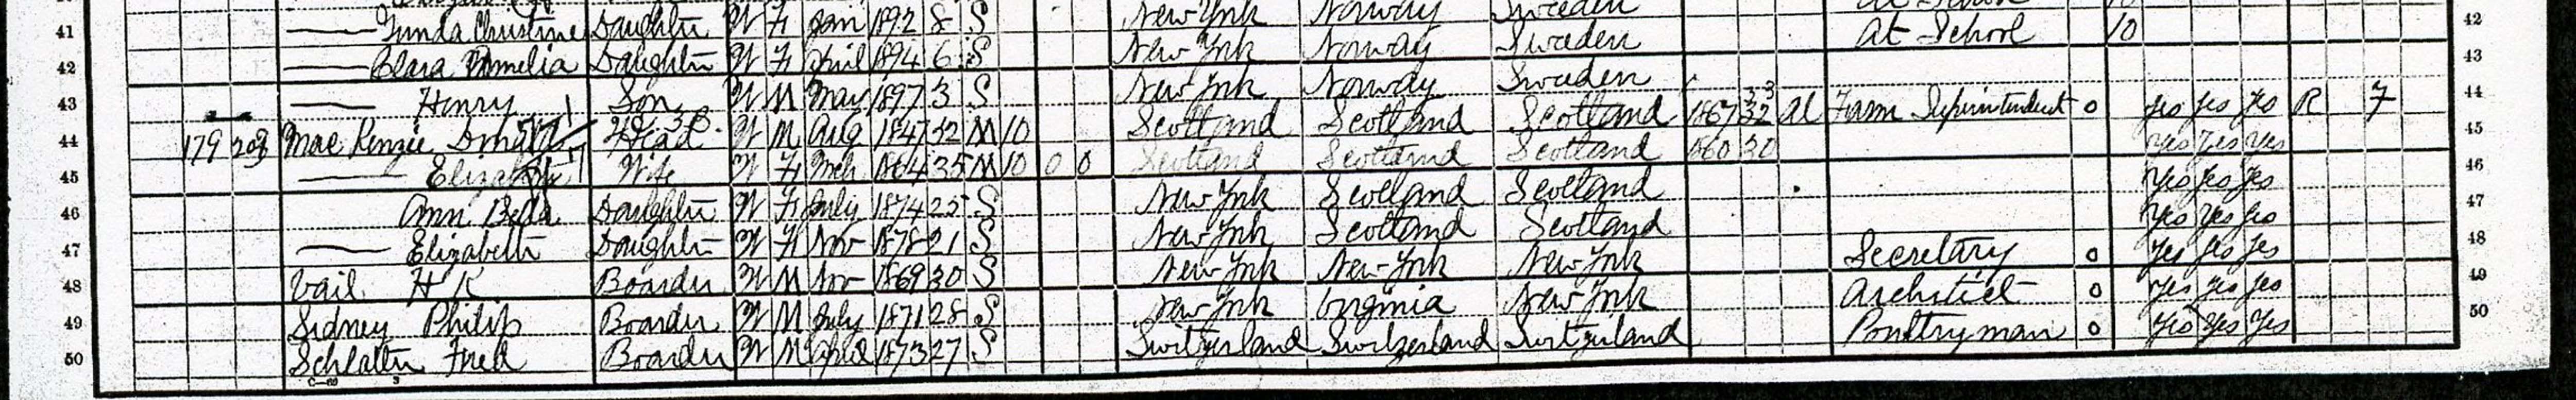 41 Gunda Christine Daughter W F Jan 1892 8 S New York Norway Sweden At School 10 42
42 Clara Daughter W F April 1894 6 S New York Norway Sweden At School 10 43
43 Henry Son W M May 1897 3 S New York Norway Sweden 44
44 179 Mac Kenzie Head W M Aug 1847 52 M 10 Scotland Scotland Scotland 1867 32 Al Farm Superintendent 0 Yes Yes Yes R F 45
45 Wife W F Mch 1864 35 M 10 0 0 Scotland Scotland Scotland 30 Yes Yes Yes 46
46 Ann Bella Daughter W F July 1874 25 S New York Scotland Scotland Yes Yes Yes 47
47 Elizabeth Daughter W F Nov 1878 21 S New York Scotland Scotland Yes Yes Yes 48
48 Vail H K Boarder W M Nov 1869 30 S New York New York New York Secretary 0 Yes Yes Yes 49
49 Sidney Philip Boarder W M July 1871 28 S New York Virginia New York Architect 0 Yes Yes Yes 50
50 Fred Boarder W M April 1873 27 S Switzerland Switzerland Switzerland Poultryman 0 Yes Yes Yes